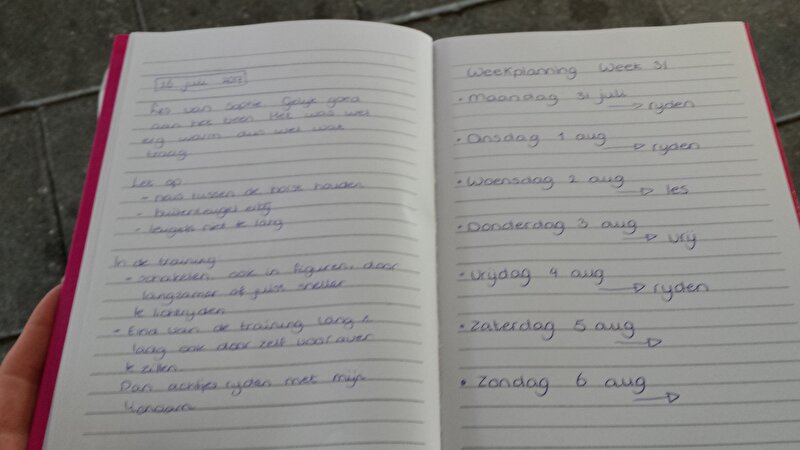 26 juli 2017
Les van Sophie. Gelijk goed
aan het been. Het was wel
erg warm dus wel wat
traag
Let op
- hals tussen de borst houden
- buitenteugel
- teugels niet te lang
In de training
- Schakelen, ook in figuren, door
langzamer of juist sneller
te lichtrijden
- Eind van de training lang &
laag ook door zelf voorover
te zitten.
Dan achtjes ryden met mijn
lichaam.
Weekplanning Week 31
• Maandag 31 juli
→ ryden
• Dinsdag 1 aug
→ ryden
• Woensdag 2 aug
→ les
• Donderdag 3 aug
→ vrij
• Vrijdag 4 aug
→ ryden
• Zaterdag 5 aug
→
• Zondag 6 aug
→